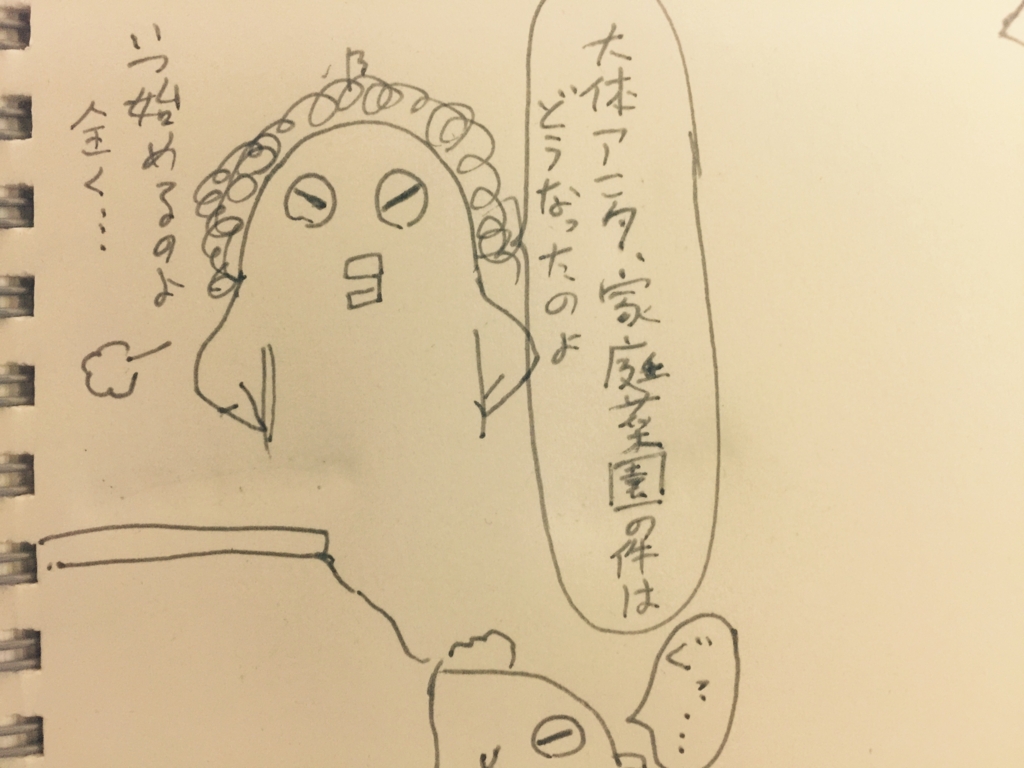 大体アンタ、家庭菜園の件は
どうなったのよ
いつ始めるのよ
全く…
ぐっ…